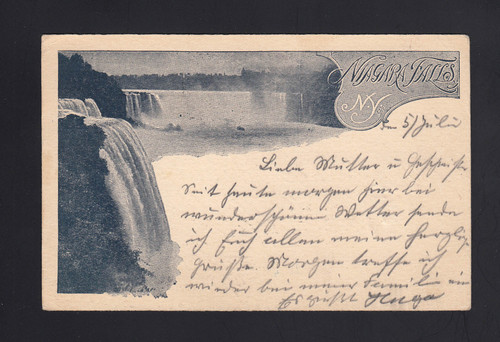 NIAGARA FALLS,
N.Y.
den 5/Juli
Liebe Mutter u Geschwister
Seit heute morgen hier bei
wunderschönem Wetter sende
ich Euch allen meine herzlig
Grüsse. Morgen treffe ich
wieder bei meiner Familie ein
Es grüsst Hugo